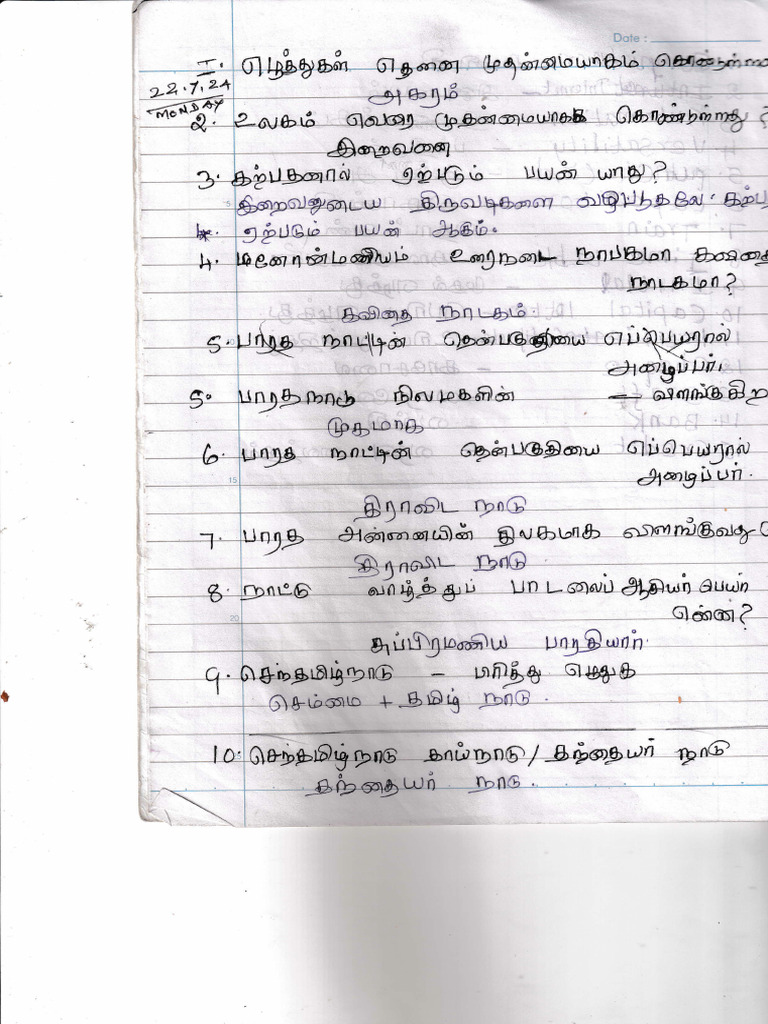 Date :
I. எழுத்துகள் எதனை முதன்மையாகம் கொண்டுள்ளன
22.7.24
MONDAY
அகரம்
2. உலகம் எவரை முதன்மையாகக் கொண்டுள்ளது ?
இறைவனை
3. கற்பதனால் ஏற்படும் பயன் யாது?
இறைவனுடைய திருவடிகளை வழிபடுதலே கற்ப
ஏற்படும் பயன் ஆகும்.
4. மனோன்மணியம் உரைநடை நாடகமா கவிதை
நாடகமா?
கவிதை நாடகம்
5. பாரத நாட்டின் தென்பகுதியை எப்பெயரால்
அழைப்பர்.
5. பாரதநாடு நிலமகளின் — விளங்குகிற
முகமாக
6. பாரத நாட்டின் தென்பகுதியை எப்பெயரால்
அழைப்பர்.
திராவிட நாடு
7. பாரத அன்னையின் திலகமாக விளங்குவது
திராவிட நாடு
8. நாட்டு வாழ்த்துப் பாடலைப் ஆசியர் பெயர்
என்ன?
சுப்பிரமணிய பாரதியார்.
9. செந்தமிழ்நாடு – பிரித்து எழுதுக
செம்மை + தமிழ் நாடு.
10. செந்தமிழ்நாடு தாய்நாடு / தந்தையர் நாடு
தந்தையர் நாடு.